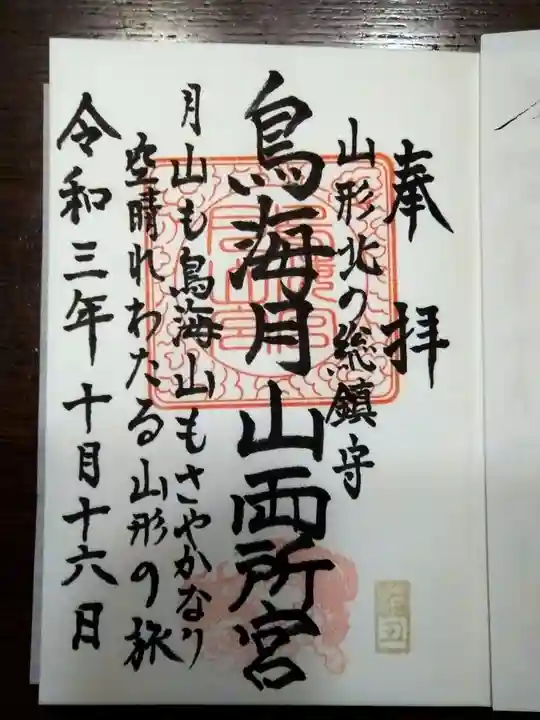 奉拝
山形北の総鎮守
鳥海月山両所宮
月山も鳥海山もさやかなり
空晴れわたる山形の旅
令和三年十月十六日